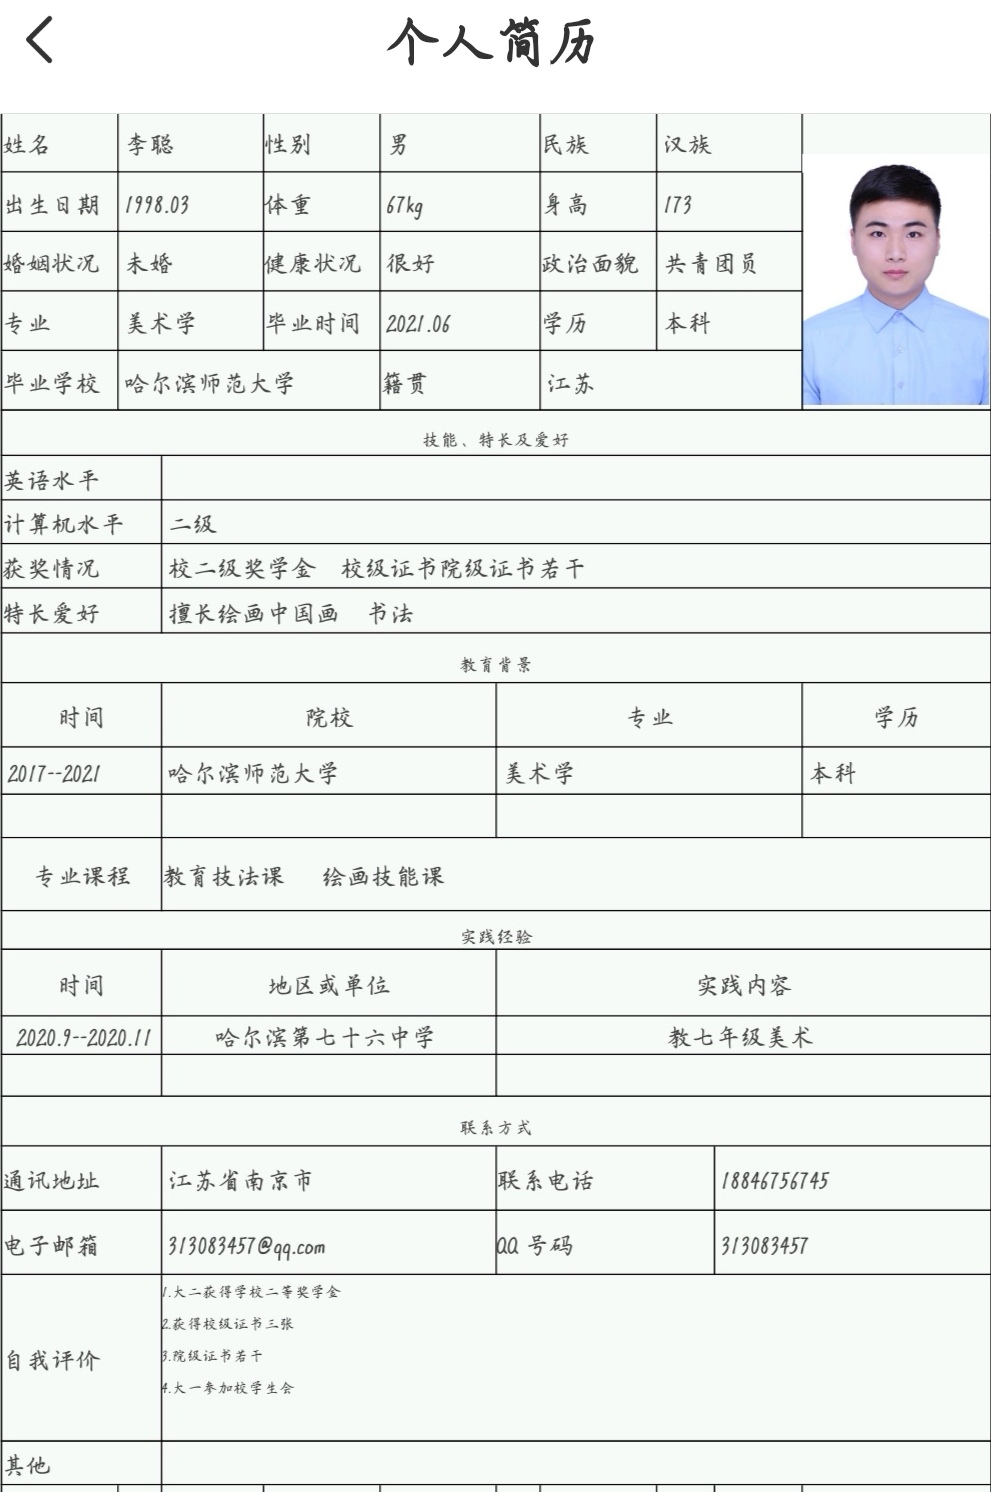 个人简历
姓名 李聪 性别 男 民族 汉族
出生日期 1998.03 体重 67kg 身高 173
婚姻状况 未婚 健康状况 很好 政治面貌 共青团员
专业 美术学 毕业时间 2021.06 学历 本科
毕业学校 哈尔滨师范大学 籍贯 江苏
技能、特长及爱好
英语水平
计算机水平 二级
获奖情况 校二级奖学金 校级证书院级证书若干
特长爱好 擅长绘画中国画 书法
教育背景
时间 院校 专业 学历
2017--2021 哈尔滨师范大学 美术学 本科
专业课程 教育技法课 绘画技能课
实践经验
时间 地区或单位 实践内容
2020.9--2020.11 哈尔滨第七十六中学 教七年级美术
联系方式
通讯地址 江苏省南京市 联系电话 18846756745
电子邮箱 313083457@qq.com QQ 号码 313083457
自我评价
1.大二获得学校二等奖学金
2.获得校级证书三张
3.院级证书若干
4.大一参加校学生会
其他